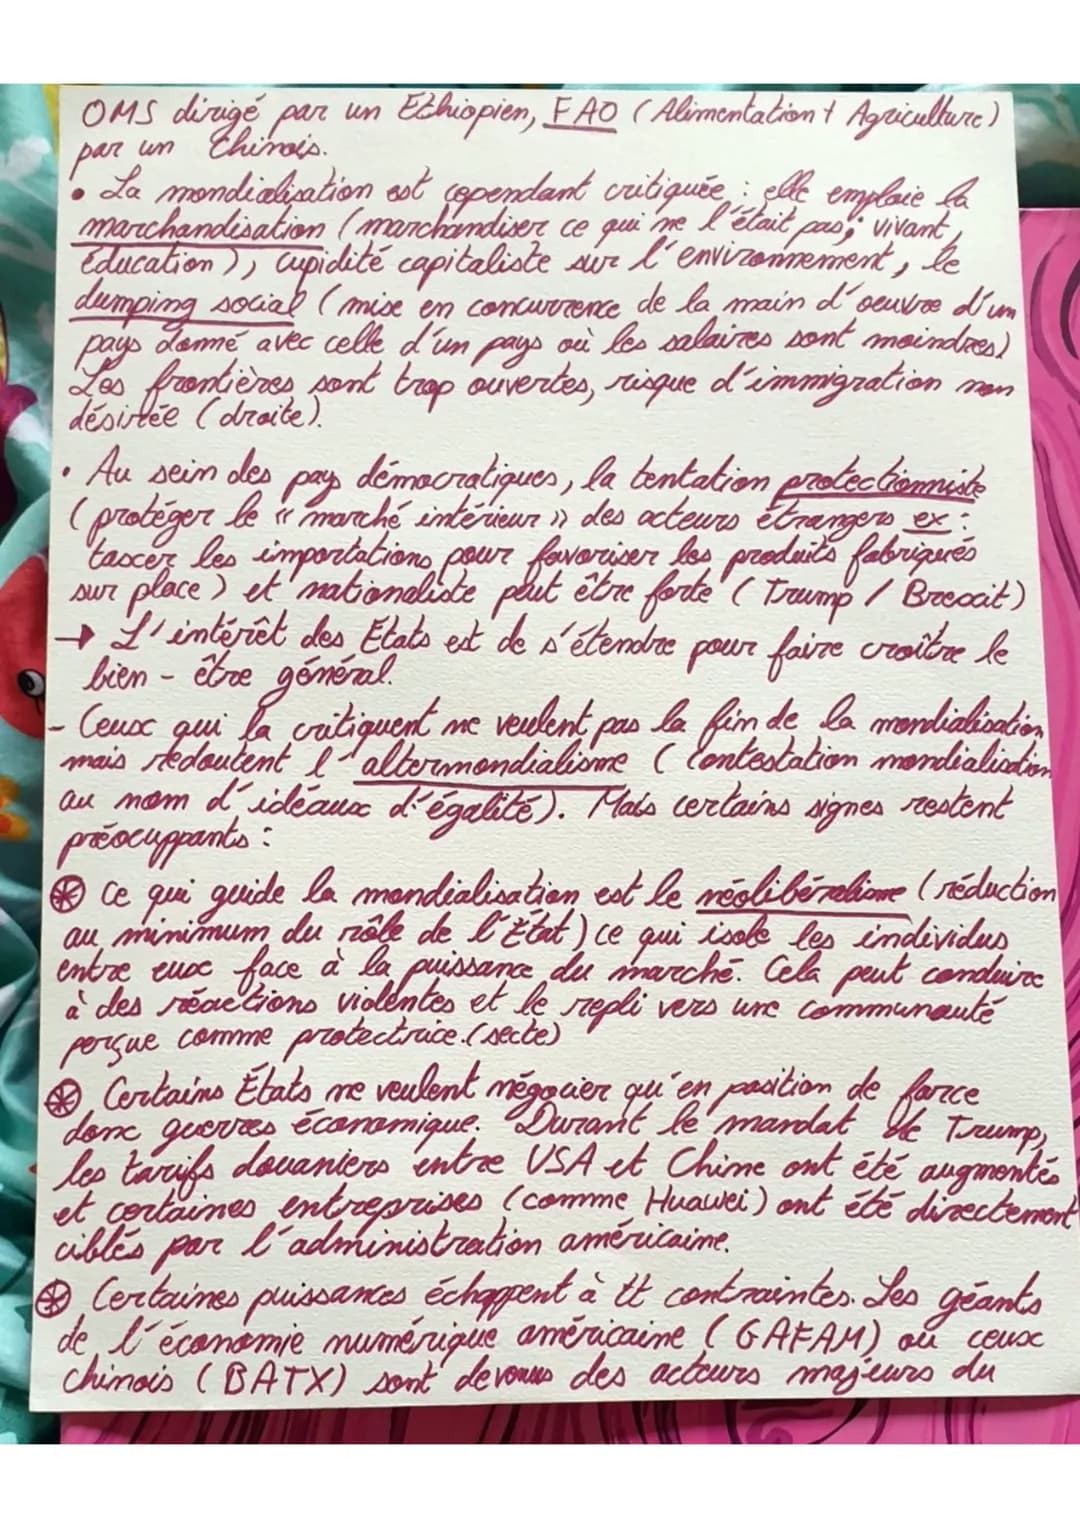 OMS dirigé par un Ethiopien, FAO (Alimentation + Agriculture)
par un Chinois.
• La mondialisation est cependant critiquée : elle emploie la
marchandisation (marchandiser ce qui ne l'était pas; vivant,
Éducation), cupidité capitaliste sur l'environnement, le
dumping social (mise en concurrence de la main d'oeuvre d'un
pays donné avec celle d'un pays où les salaires sont moindres)
Les frontières sont trop ouvertes, risque d'immigration non
désirée (droite).
• Au sein des pays démocratiques, la tentation protectionniste
(protéger le « marché intérieur » des acteurs étrangers ex :
taxer les importations pour favoriser les produits fabriqués
sur place) et nationaliste peut être forte (Trump / Brexit)
→ L'intérêt des États est de s'étendre pour faire croître le
bien-être général.
- Ceux qui la critiquent ne veulent pas la fin de la mondialisation
mais redoutent l'altermondialisme (Contestation mondialisation
au nom d'idéaux d'égalité). Mais certains signes restent
préocuppants :
⊛ Ce qui guide la mondialisation est le néolibéralisme (réduction
au minimum du rôle de l'État) ce qui isole les individus
entre eux face à la puissance du marché. Cela peut conduire
à des réactions violentes et le repli vers une communauté
perçue comme protectrice.(secte)
⊛ Certains États ne veulent négocier qu'en position de force
donc guerres économique. Durant le mandat de Trump,
les tarifs douaniers entre USA et Chine ont été augmentés
et certaines entreprises (comme Huawei) ont été directement
ciblés par l'administration américaine.
⊛ Certaines puissances échappent à tt contraintes. Les géants
de l'économie numérique américaine (GAFAM) ou ceux
chinois (BATX) sont devenus des acteurs majeurs du